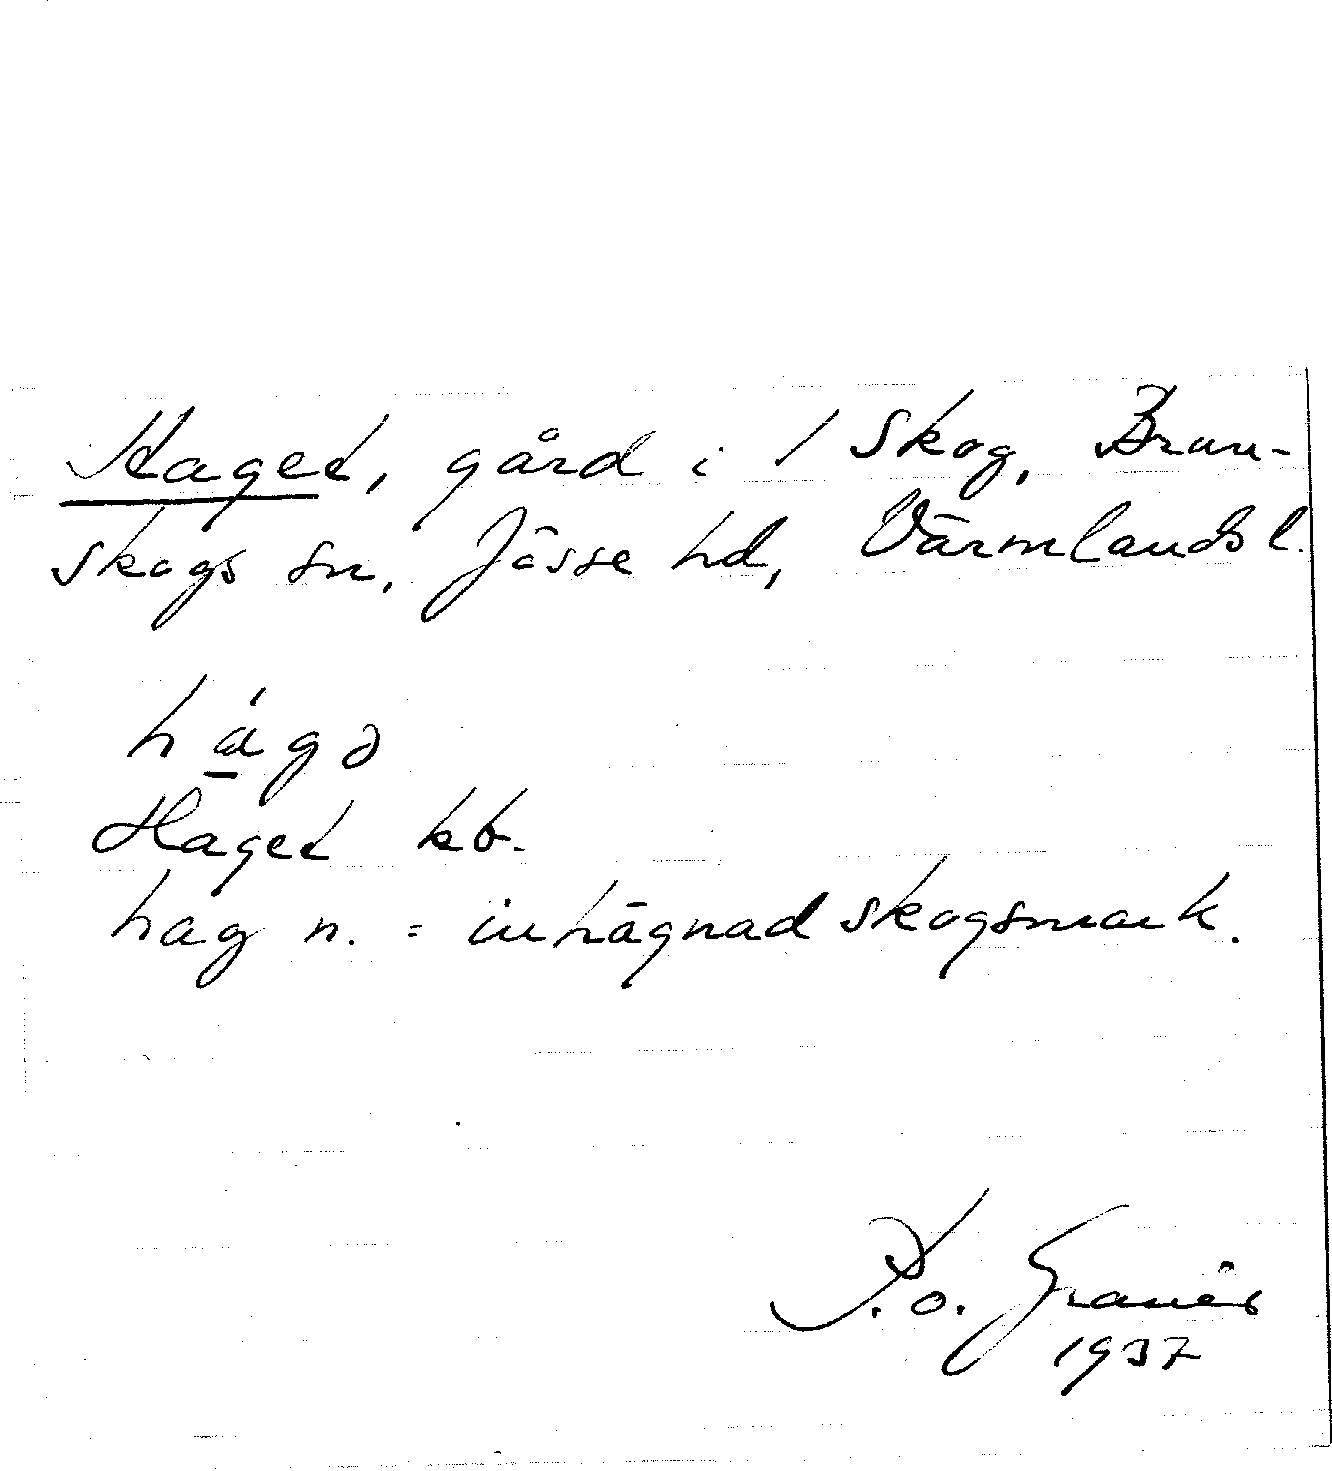 Haget, gård i 1 Skog, Brun-
skogs sn, Jösse hd, Värmlands l.
hág∂
Haget kb.
hag n. = inhägnad skogsmark.
P.o. Granås
1937